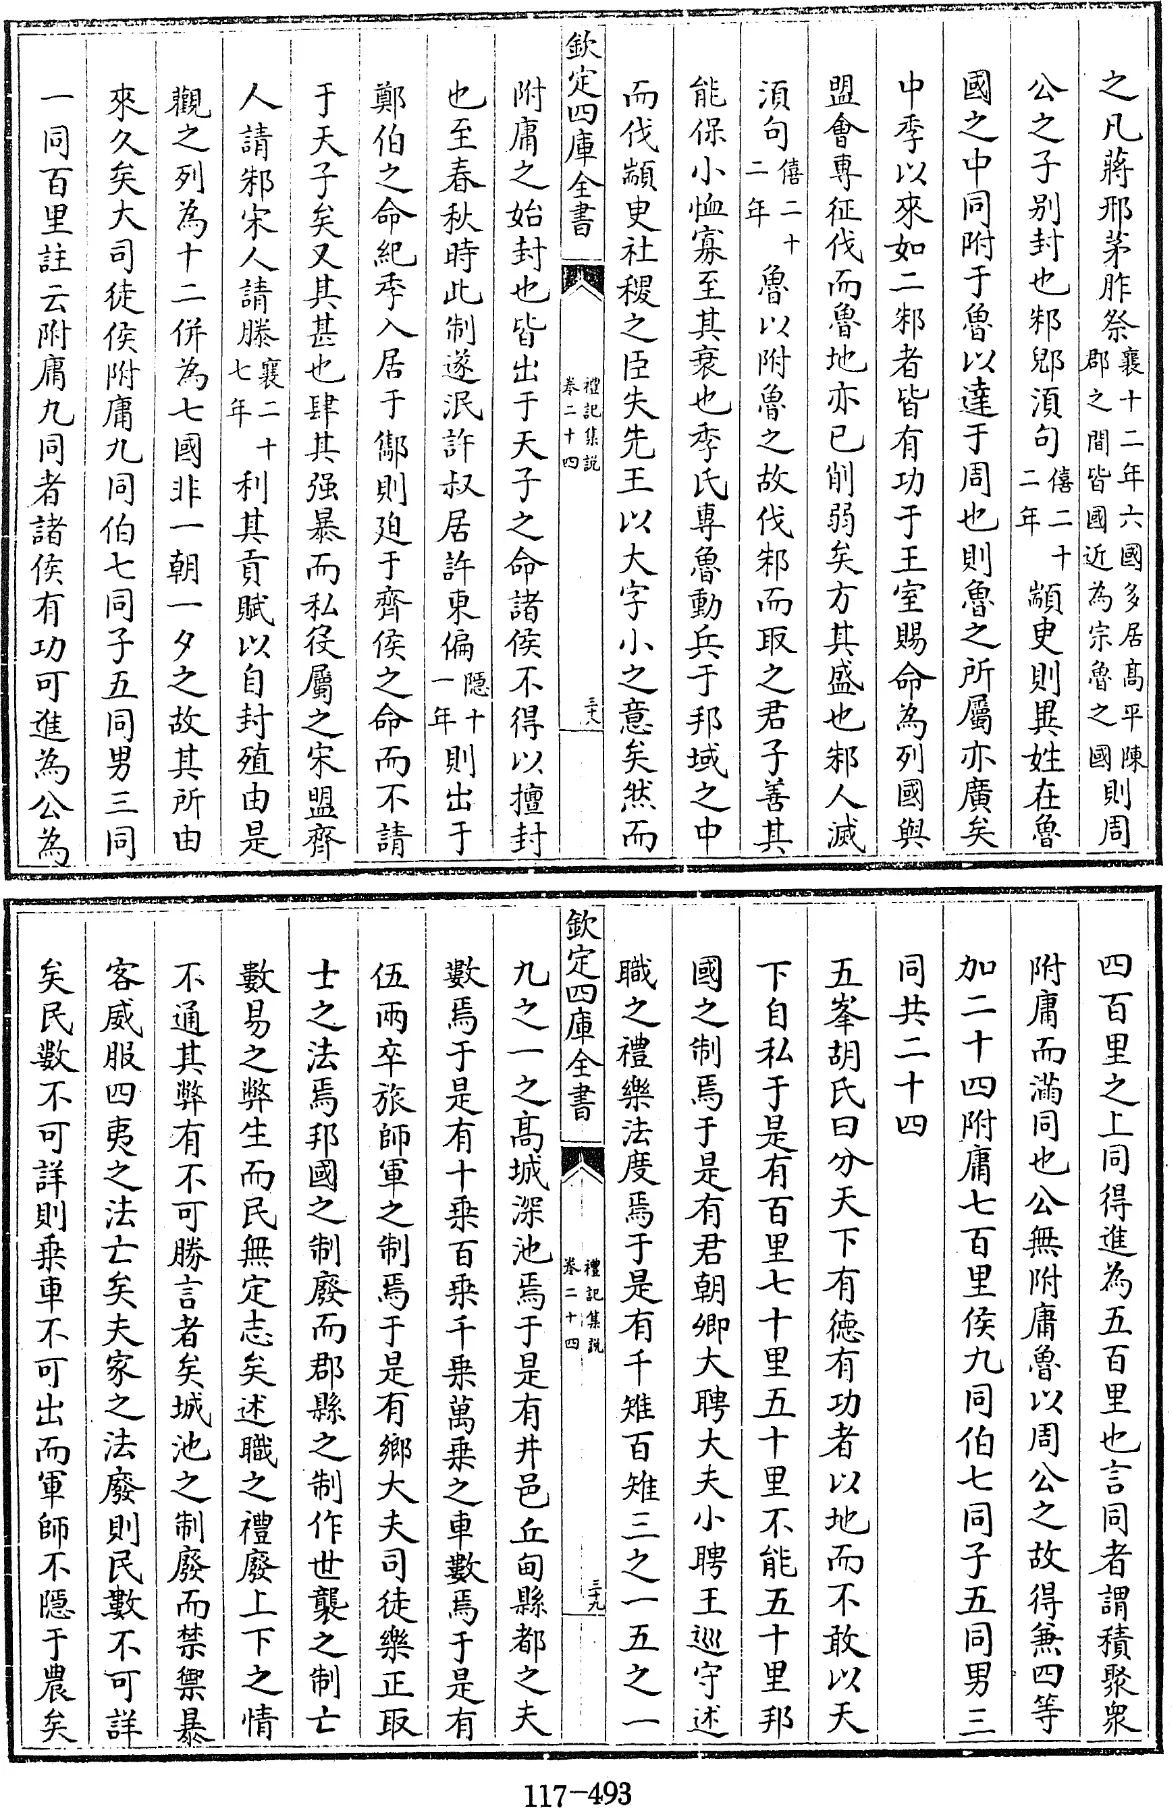 之凡蔣邢茅胙祭襄十二年六國多居高平陳郡之間皆國近為宗魯之國則周
公之子别封也邾郳湏句僖二十二年顓臾則異姓在魯
國之中同附于魯以達于周也則魯之所屬亦廣矣
中季以來如二邾者皆有功于王室賜命為列國與
盟會專征伐而魯地亦已削弱矣方其盛也邾人滅
湏句僖二十二年魯以附魯之故伐邾而取之君子善其
能保小恤寡至其衰也季氏專魯動兵于邦域之中
而伐顓臾社稷之臣失先王以大字小之意矣然而
欽定四庫全書
禮記集說
卷二十四
三十八
附庸之始封也皆出于天子之命諸侯不得以擅封
也至春秋時此制遂泯許叔居許東偏隱十一年則出于
鄭伯之命紀季入居于酅則廹于齊侯之命而不請
于天子矣又其甚也肆其强暴而私役屬之宋盟齊
人請邾宋人請滕襄二十七年利其貢賦以自封殖由是
觀之列為十二併為七國非一朝一夕之故其所由
來久矣大司徒侯附庸九同伯七同子五同男三同
一同百里註云附庸九同者諸侯有功可進為公為
四百里之上同得進為五百里也言同者謂積聚衆
附庸而滿同也公無附庸魯以周公之故得兼四等
加二十四附庸七百里侯九同伯七同子五同男三
同共二十四
五峯胡氏曰分天下有徳有功者以地而不敢以天
下自私于是有百里七十里五十里不能五十里邦
國之制焉于是有君朝卿大聘大夫小聘王廵守述
職之禮樂法度焉于是有千雉百雉三之一五之一
欽定四庫全書
禮記集說
卷二十四
三十九
九之一之髙城深池焉于是有井邑丘甸縣都之夫
數焉于是有十乗百乗千乗萬乗之車數焉于是有
伍兩卒旅師軍之制焉于是有鄉大夫司徒樂正取
士之法焉邦國之制廢而郡縣之制作世襲之制亡
數易之弊生而民無定志矣述職之禮廢上下之情
不通其弊有不可勝言者矣城池之制廢而禁禦暴
客威服四夷之法亡矣夫家之法廢則民數不可詳
矣民數不可詳則乗車不可出而軍師不隱于農矣
117-493